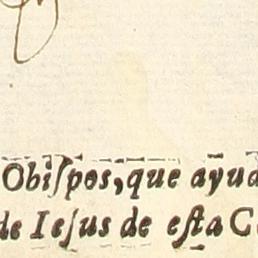 Obiſpos, que ayud
de Ieſus de eſta C